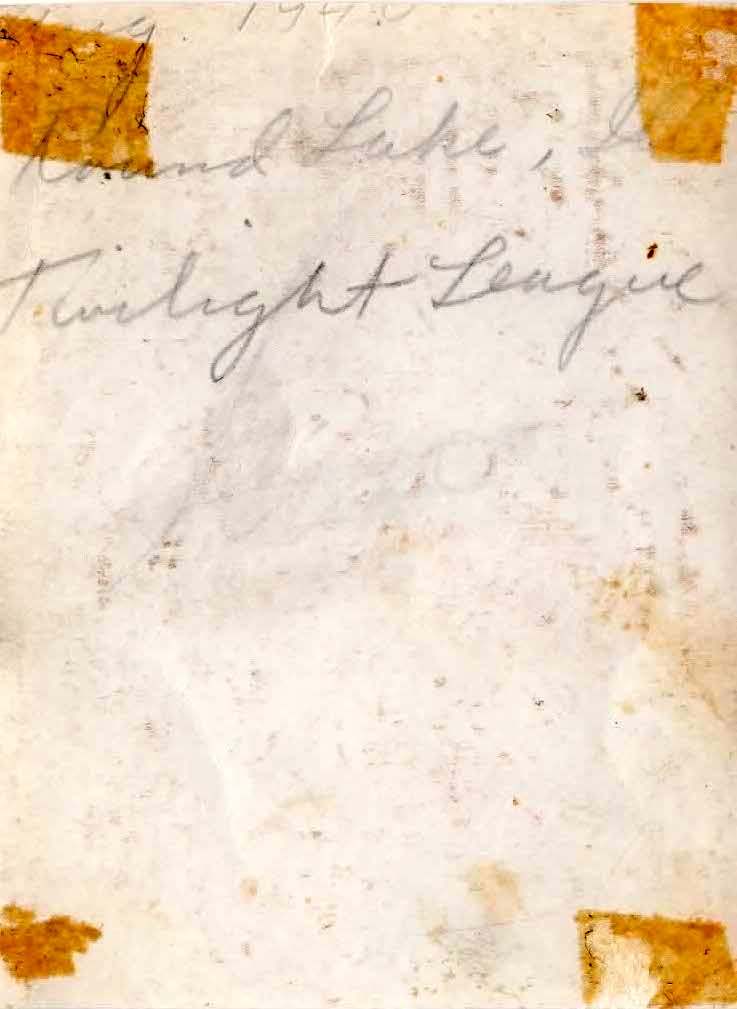 Aug. 1940
Round Lake, Ill
Twilight League